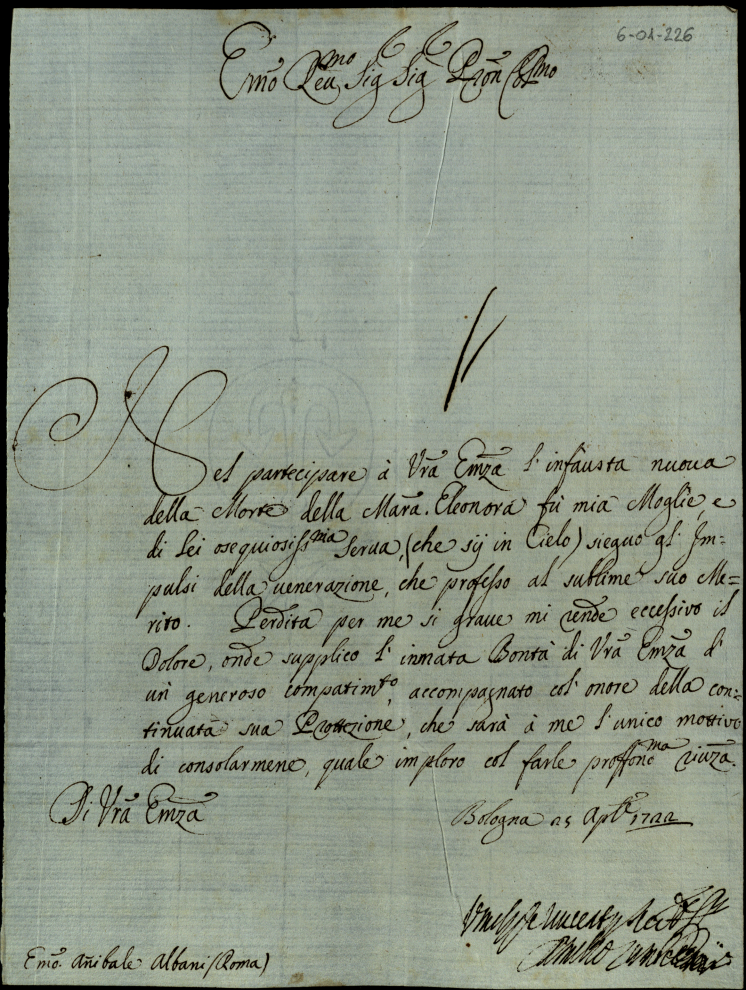 6-01-226
Emõ Reu.mo Sig.r Sig.r Pron Col.mo
Nel partecipare à Vrã Emza l'infausta nuoua
della Morte della Marã. Eleonora fù mia Moglie, e
di Lei osequiosiss.ma Serua, (che sij in Cielo) sieguo gl'Im=
pulsi della uenerazione, che professo al sublime suo Me=
rito. Perdita per me si graue mi rende eccessivo il
Dolore, onde supplico l'innata Bontà di Vrã Emza d'
un generoso compatim.to, accompagnato col'onore della con=
tinuata sua Protezione, che sarà à me l'unico mottivo
di consolarmene, quale imploro col farle proffon.ma riuza.
Di Vrã Emza
Bologna 25 Aple 1722
Emõ. Añibale Albani (Roma)